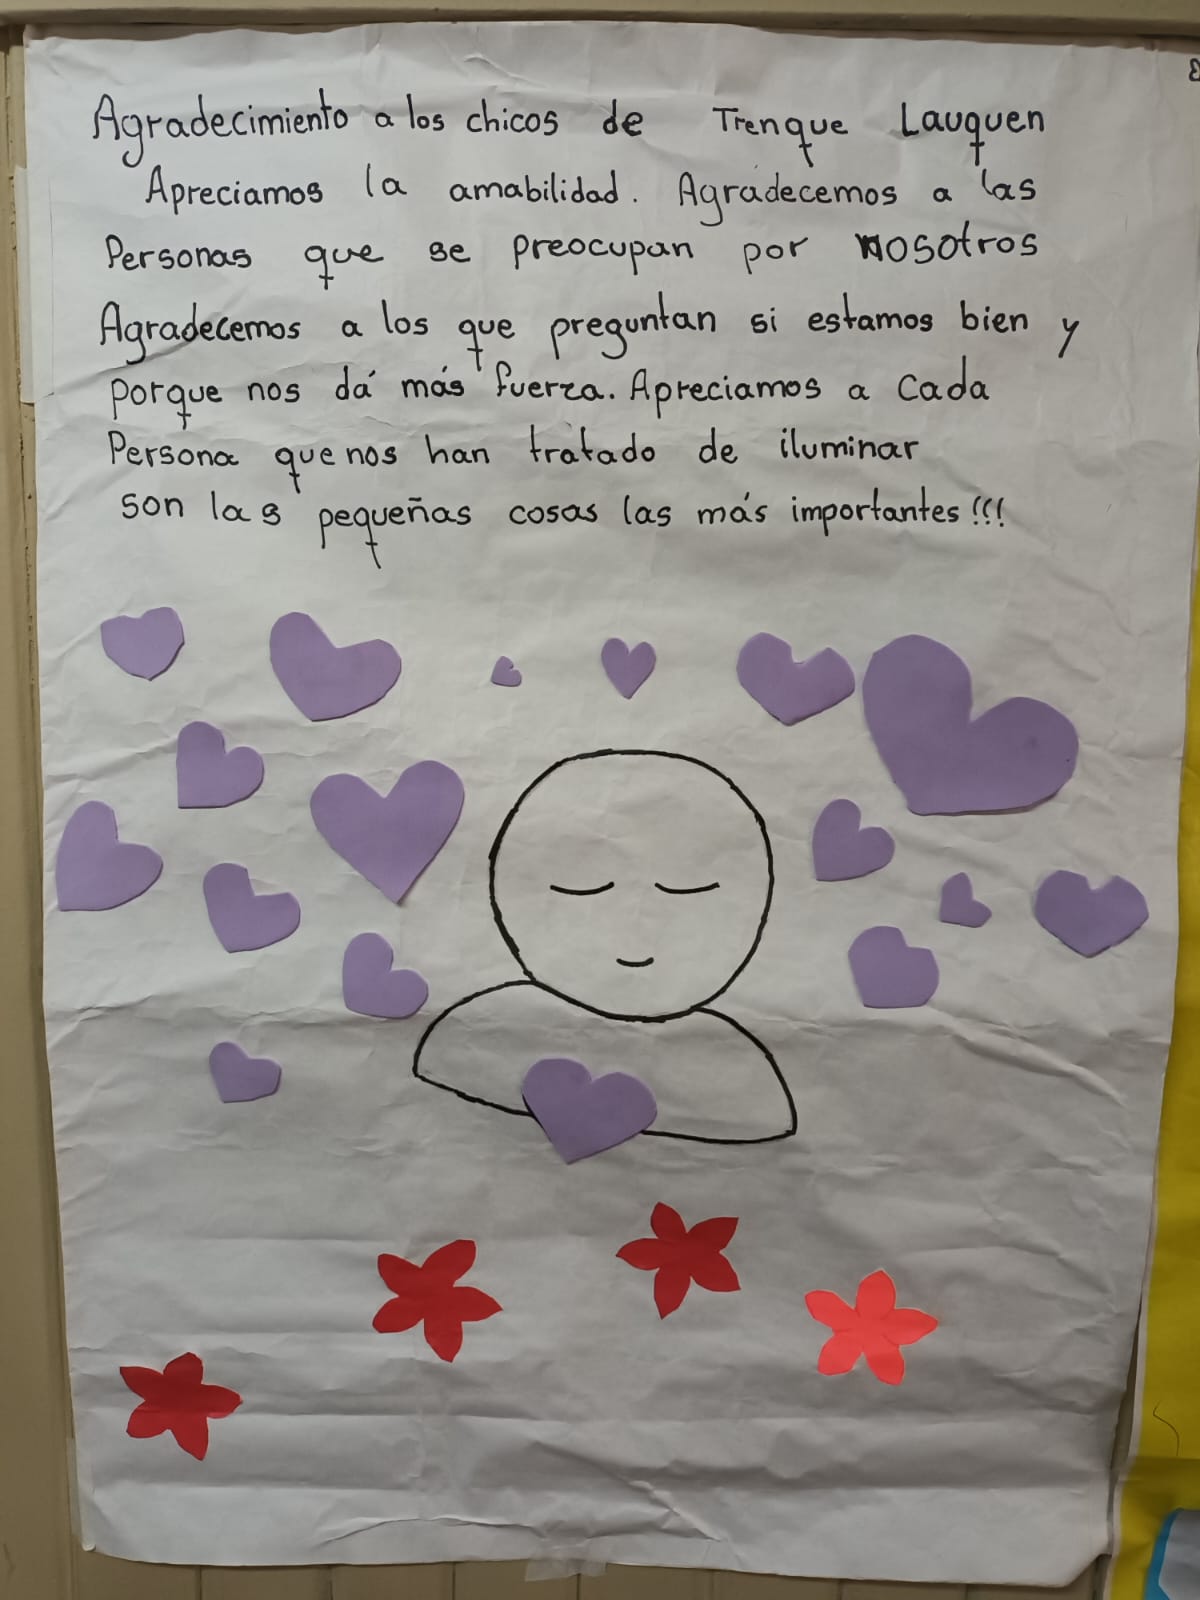 Agradecimiento a los chicos de Trenque Lauquen
Apreciamos la amabilidad. Agradecemos a las
Personas que se preocupan por nosotros
Agradecemos a los que preguntan si estamos bien y
porque nos dá más fuerza. Apreciamos a cada
Persona que nos han tratado de iluminar
son las pequeñas cosas las más importantes!!!